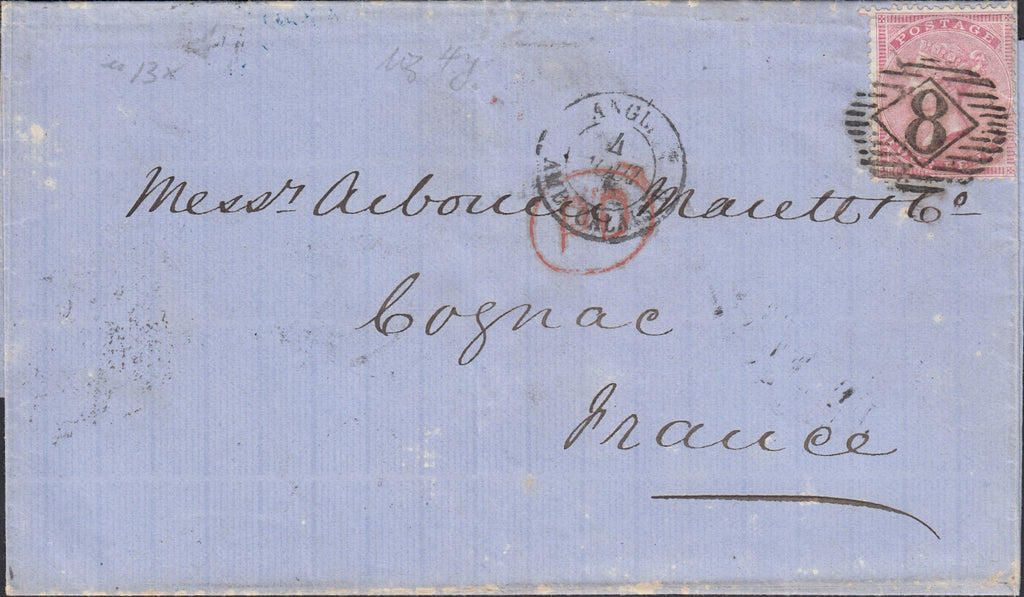 13x
POSTAGE
8
ANGL.
4
PD
Messrs Arbouin Marett & Co
Cognac
France